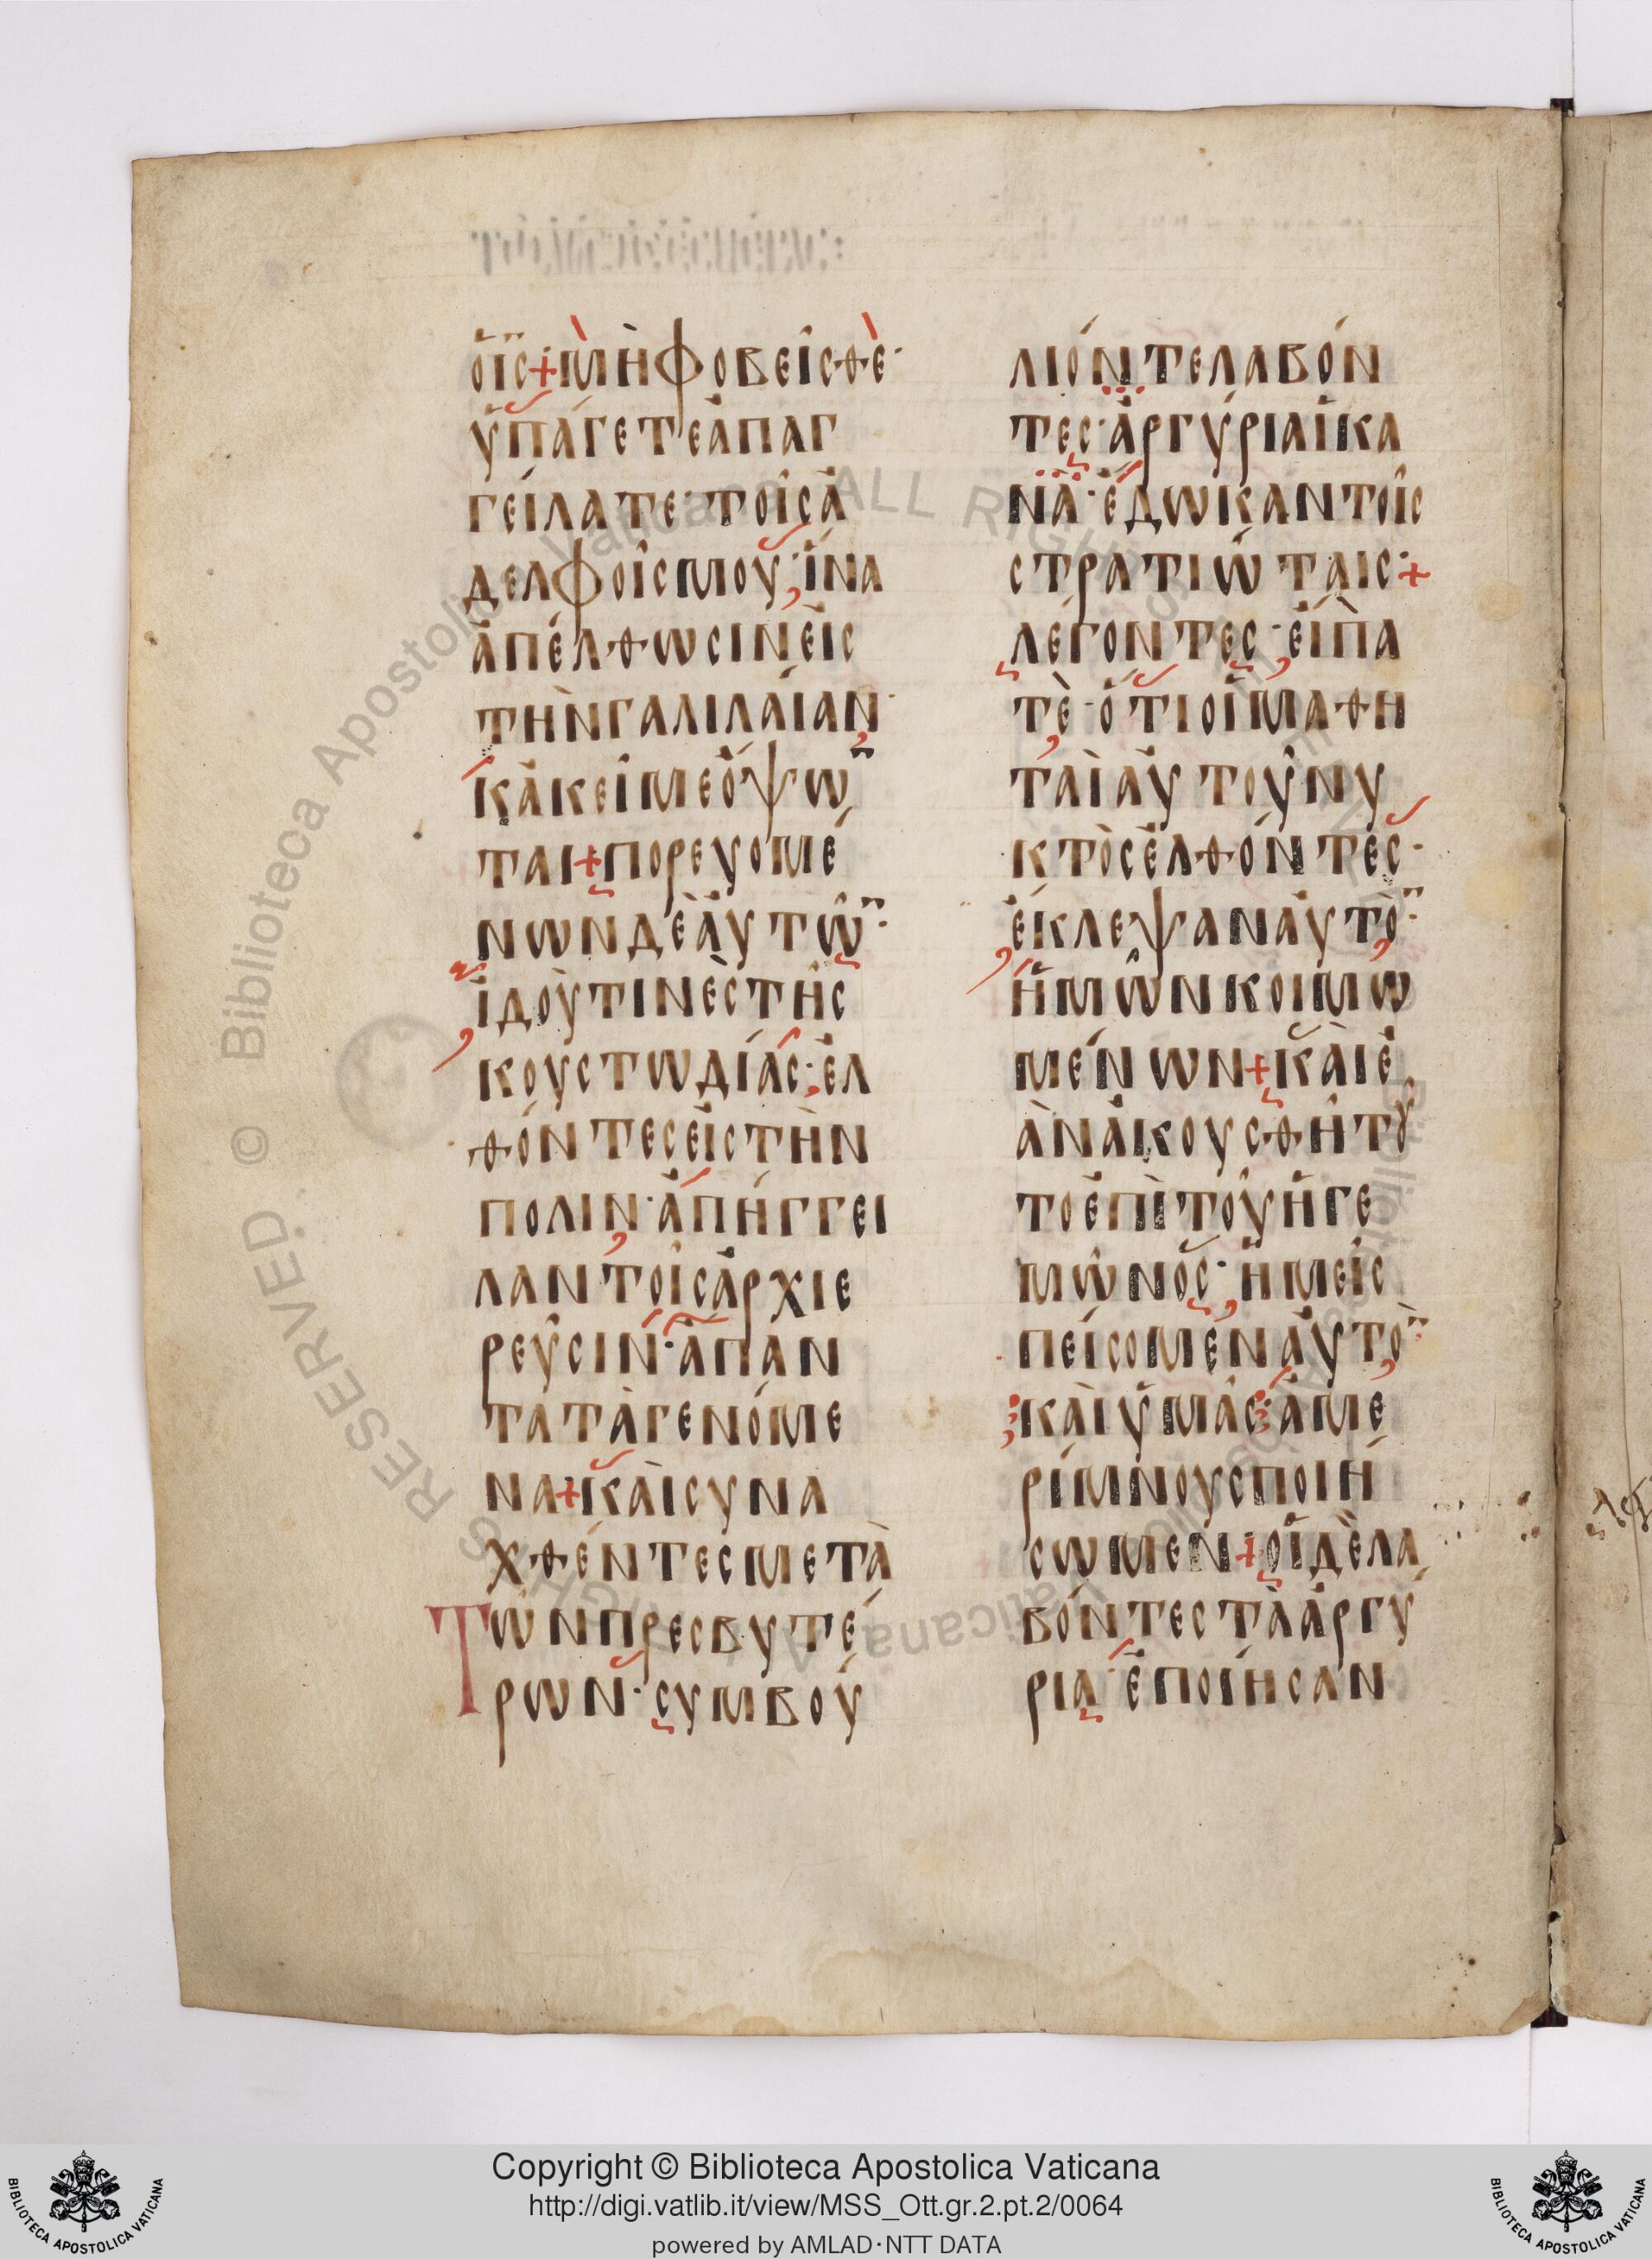 ὁῖς+μὴφοβεῖσθὲ·
ὑπάγετεἀπαγ
γείλατε·τοῖςἀ
δελφοῖςμου·ἵνα
ἀπέλθωσινεἰς
τὴνγαλιλαίαν·
κἀκεῖμεὄψω̅
ται+πορευομέ
νωνδὲἀυτῶ̅·
ἰδοὺτινὲςτῆς
κουστωδίας·ἐλ
θόντεςεἰςτὴν
πολιν·ἀπήγγει
λαντοῖςἀρχιε
ρεῦσιν·ἁπαν
τατὰγενόμε
να+καὶσυνα
χθέντεςμετὰ
Τῶνπρεσβυτέ
ρων·συμβού
λιόντελαβόν
τες·ἀργύριαἱκα
νὰ·ἔδωκαντοῖς
στρατιώταις·+
λέγοντες·εἴπα
τὲ·ὅτιοἱμαθη
ταὶἀυτοῦνυ
κτὸςἐλθόντες·
ἔκλεψαναὐτὸ̅·
ἡμῶνκοιμω
μένων+καὶἐ
ὰνἀκουσθῆτοῦ
τοἐπὶτοῦἡγε
μῶνος·ἡμεῖς
πείσομεναὐτὸ̅·
καὶὑμᾶς·ἀμε
ρίμνουςποιή
σωμεν+οἱδὲλα
βόντεςτὰἀργύ
ρια·ἐποίησαν
Copyright © Biblioteca Apostolica Vaticana
http://digi.vatlib.it/view/MSS_Ott.gr.2.pt.2/0064
powered by AMLAD·NTT DATA
BIBLIOTECA APOSTOLICA VATICANA
BIBLIOTECA APOSTOLICA VATICANA